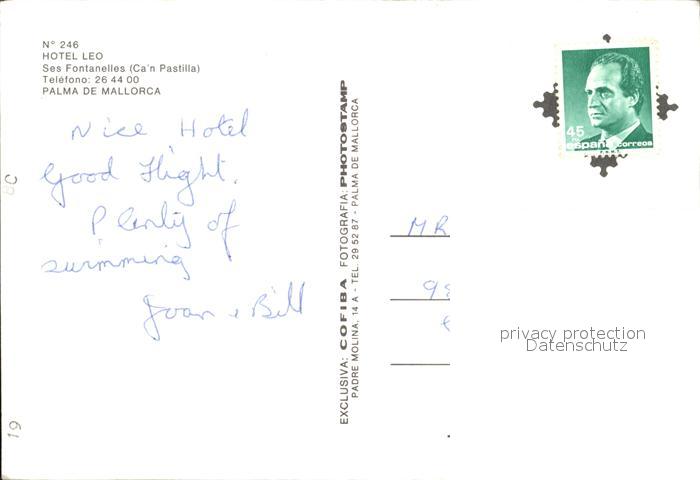 N° 246
HOTEL LEO
Ses Fontanelles (Ca'n Pastilla)
Teléfono: 26 44 00
PALMA DE MALLORCA
Nice Hotel
Good Flight.
Plenty of
swimming
Joan + Bill
EXCLUSIVA: COFIBA FOTOGRAFIA: PHOTOSTAMP
PADRE MOLINA, 14 A - TEL. 29 52 87 - PALMA DE MALLORCA
45
españa correos
MR
privacy protection
Datenschutz
19